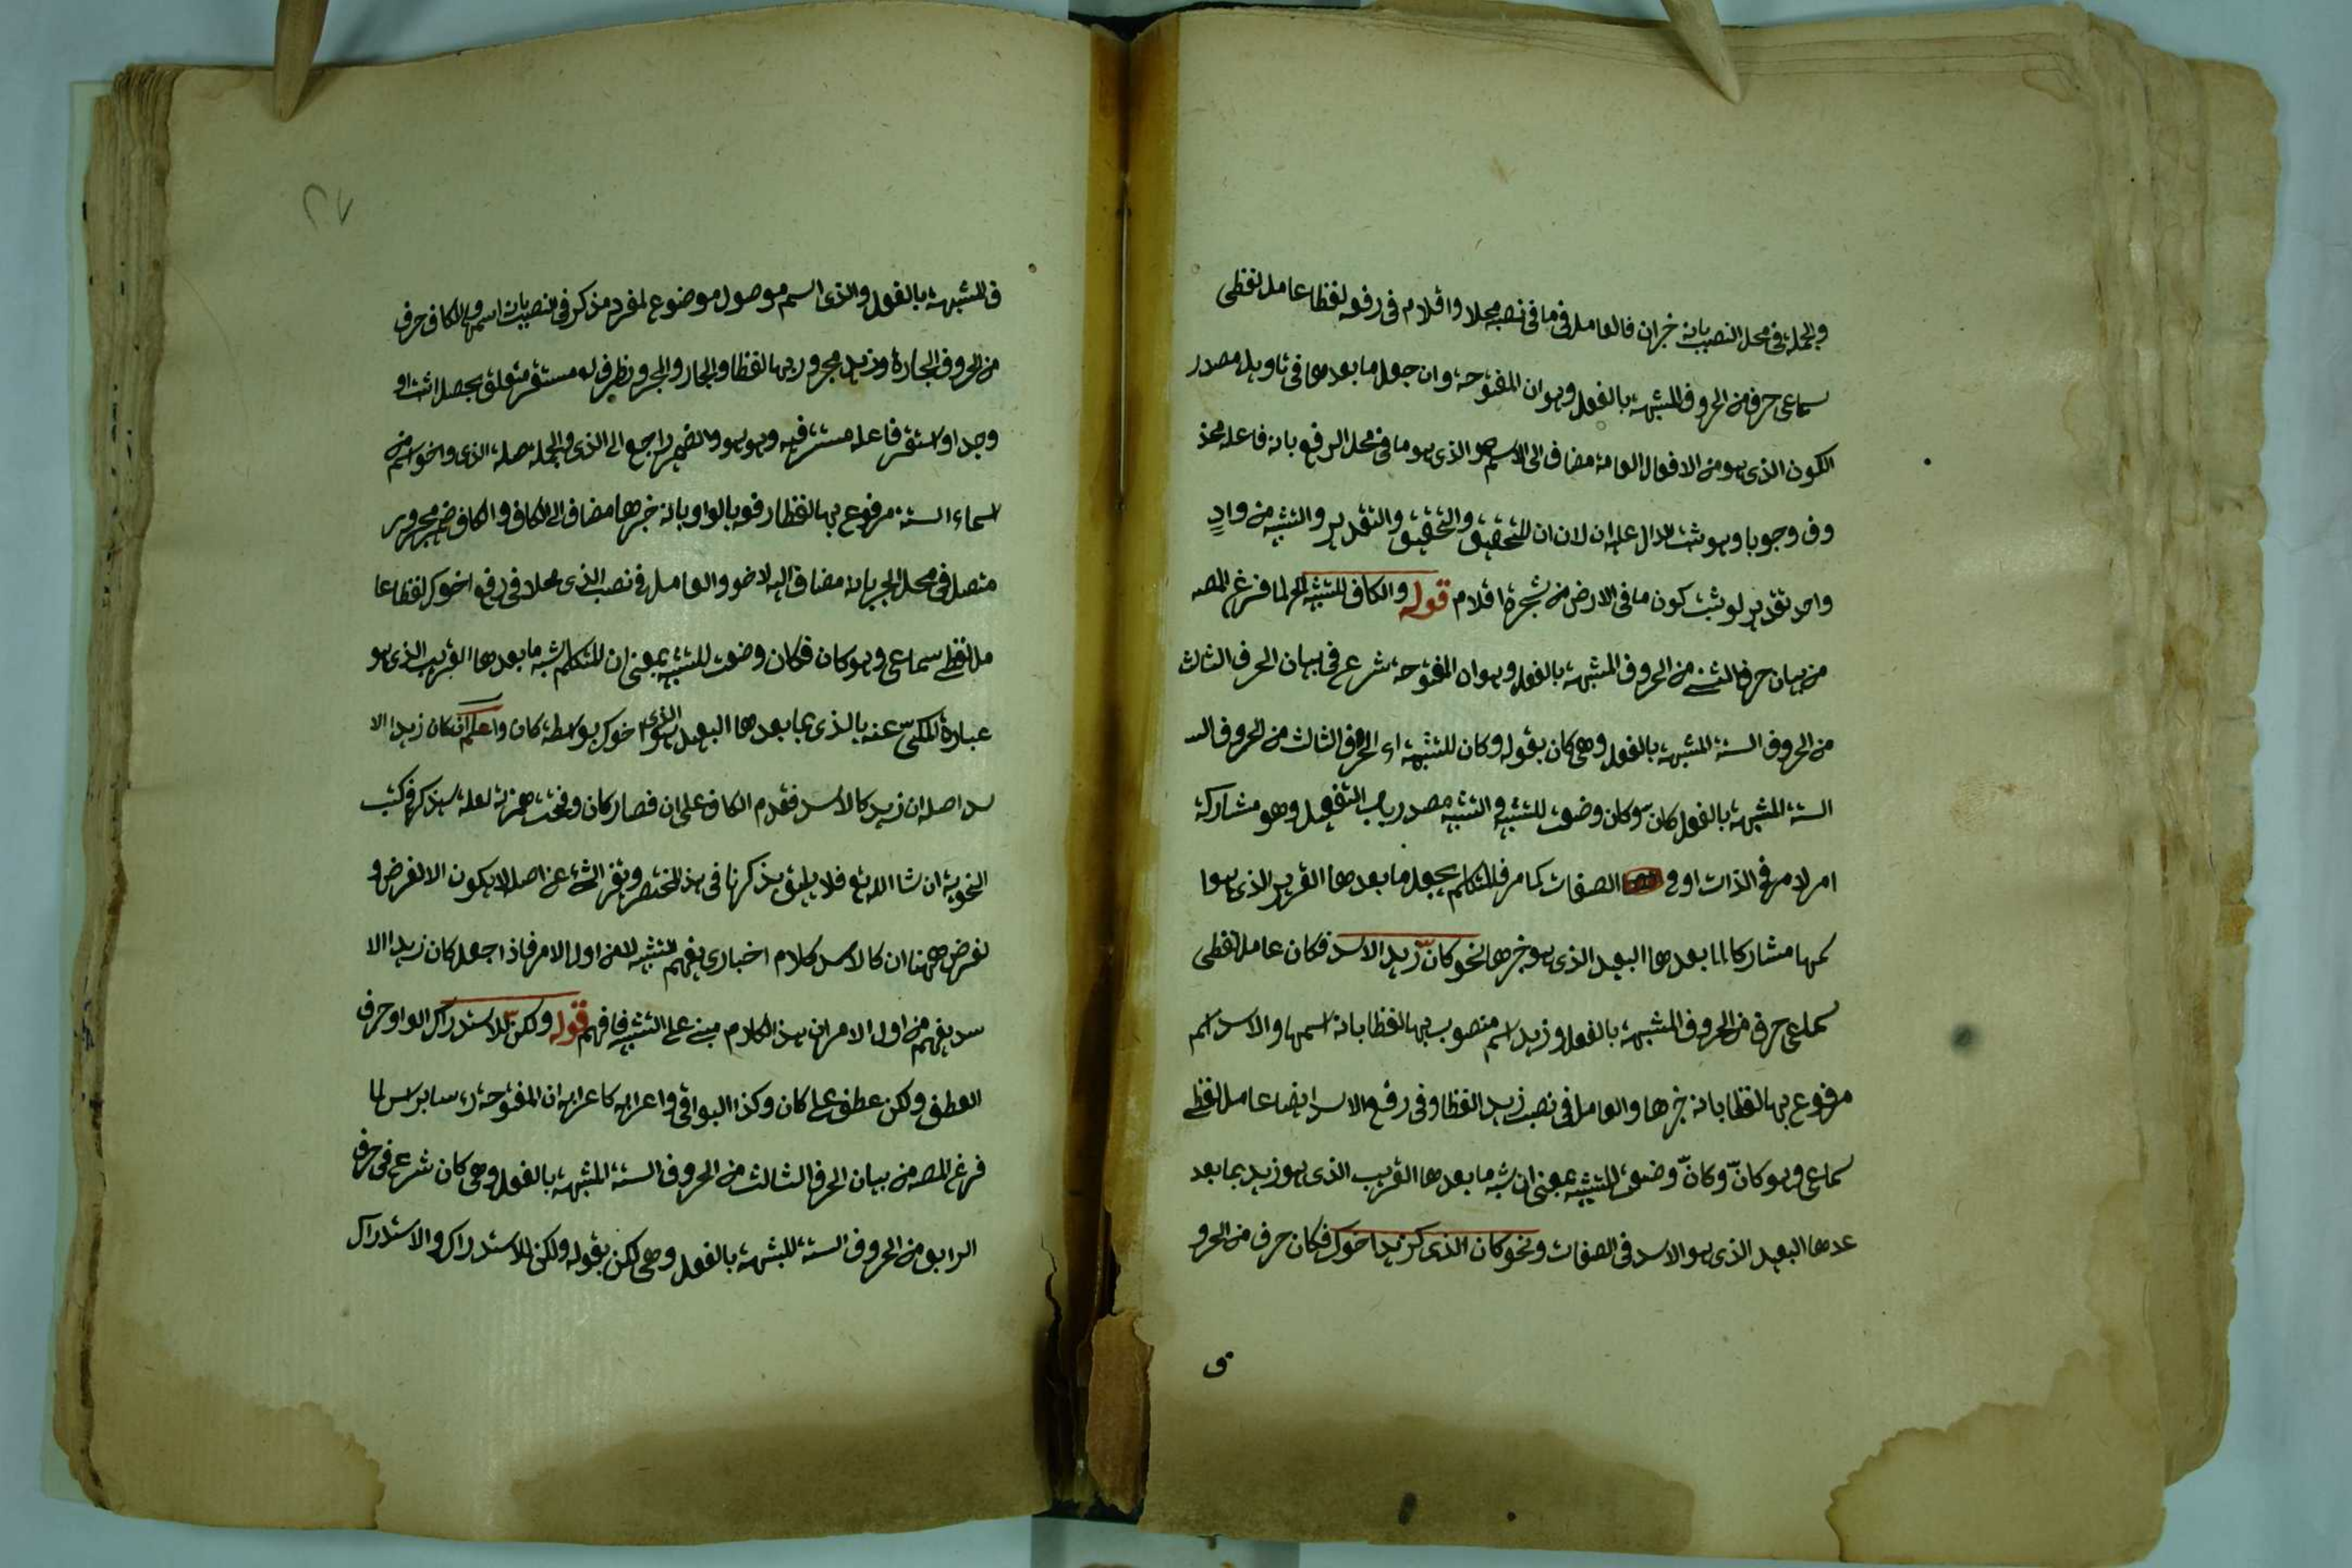 والجملة فى محل النصب بانه خبر ان فالعامل فى ما فى نصبه محلا واقلام فى رفعه لفظا عامل لفظى
سماعى حرف من الحروف المشبهة بالفعل وهو ان المفتوحة وان جعل ما بعدها فى تاويل مصدر
الكون الذى هو من الافعال العامة مضاف الى الاسم هو الذى هو ما فى محل الرفع بانه فاعله محذ
وف وجوبا وهو ثبت لدال عليه ان لان ان للتحقيق والتحقيق والتقدير والتشبيه من وادٍ
واحد تقدير لو ثبت كون ما فى الارض من شجرة اقلام قوله والكاف للتشبيه الخ لما فرغ المصه
من بيان حرف الثنى من الحروف المشبهة بالفعل وهو ان المفتوحة شرع فى بيان الحرف الثالث
من الحروف الستة المشبهة بالفعل وهى كان بقوله وكان للتشبيه اى الحرف الثالث من الحروف الس
الستة المشبهة بالفعل كان وكان وضعت للتشبيه والتشبيه مصدر باب التفعيل وهو مشاركة
امر لامر فى الذات او فى الصفات كما مر فالمتكلم يجعل ما بعدها القريب الذى هو ا
سمها مشاركا لما بعدها البعيد الذى هو خبرها نحو كانّ زيد الاسد فكان عامل لفظى
سماعى حرف من الحروف المشبهة بالفعل وزيد اسم منصوب بها لفظا بانه اسمها والاسد اسم
مرفوع بها لفظا بانه خبرها والعامل فى نصب زيد لفظا وفى رفع الاسد ايضا عامل لفظى
سماعى وهو كانّ وكانّ وضعت للتشبيه بمعنى ان شبه ما بعدها القريب الذى هو زيد بما بعد
عدها البعيد الذى هو الاسد فى الصفات ونحو كان الذى كزيد اخوك فكان حرف من الحرو
ف
٢٧
ف المشبهة بالفعل والذى اسم موصول موضوع لمفرد مذكر فى نصب بانه اسمها والكاف حرف
من الحروف الجارة وزيد مجرور بها لفظا والجار والمجرور ظرف له مستقر متعلق بحصل اثبت او
وجد او استقر فاعله مستتر فيه وهو هو والضمير راجع الى الذى والجملة صلة الذى واخو اسم من
اسماء الستة مرفوع بها لفظا رفعه بالواو بانه خبرها مضاف الى الكاف والكاف ضمير مجرور
متصل فى محل الجر بانه مضاف اليه لاخو والعامل فى نصب الذى محلا وفى رفع اخوك لفظا عا
مل لفظى سماعى وهو كان فكان وضعت للتشبيه بمعنى ان المتكلم شبه ما بعدها القريب الذى هو
عبارة المكنىّ عنه بالذى بما بعدها البعيد الذى هو اخوك بواسطة كان واعلم ان كان زيدا الا
سد اصله ان زيد كالاسد فقدم الكاف على ان فصار كان وفتحت همزته لعلة سيذكر فى كتب
النحوية ان شا الله تع فلا يليق بذكرها فى هذ المختصر وتغير الشى عن اصله لا يكون الا لغرض و
لغرض ههنا ان كالاسد كلام اخبارى يفهم التشبيه لا من اول الامر فاذا جعل كان زيدا الا
سد يفهم من اول الامر ان هذ الكلام مبنى على التشبيه فافهم قوله ولكن للاستدراك الواو حرف
العطف ولكن عطف على كان وكذا البواقى واعرابه كاعرابه ان المفتوحة لما
فرغ المصه من بيان الحرف الثالث من الحروف الستة المشبهة بالفعل وهى كان شرع فى حرف
الرابع من الحروف الستة المشبهة بالفعل وهى لكن بقوله ولكن للاستدراك والاستدراك